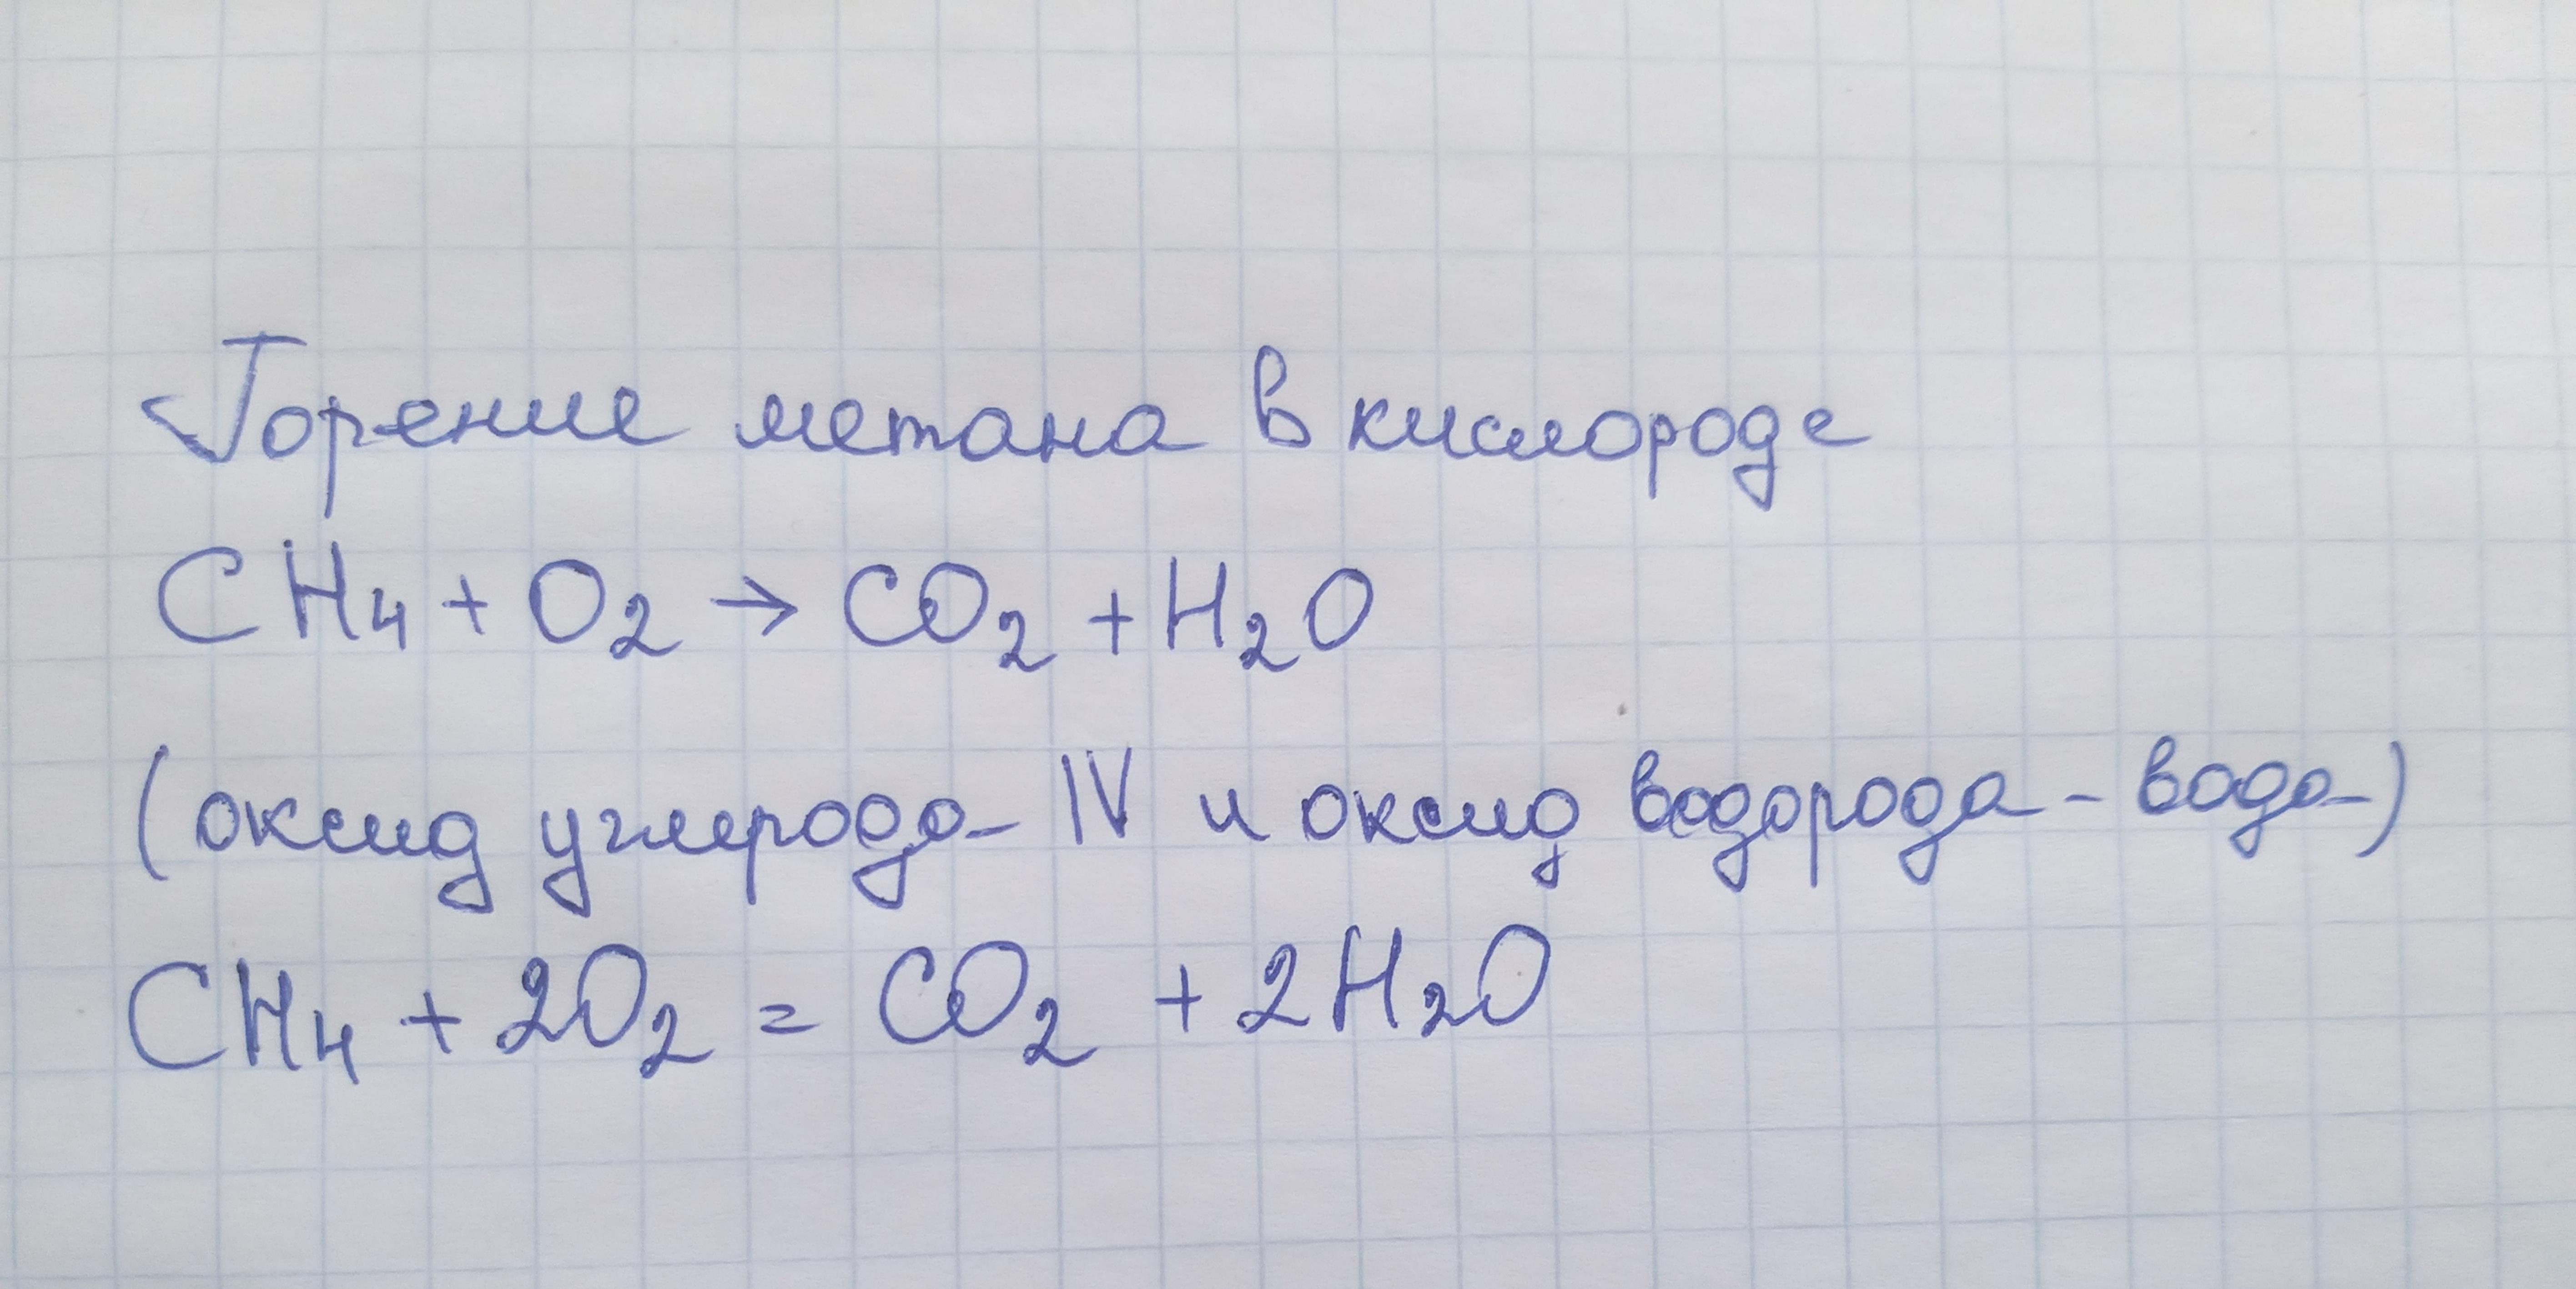 Горение метана в кислороде
CH₄ + O₂ → CO₂ + H₂O
(оксид углерода IV и оксид водорода - вода)
CH₄ + 2O₂ = CO₂ + 2H₂O